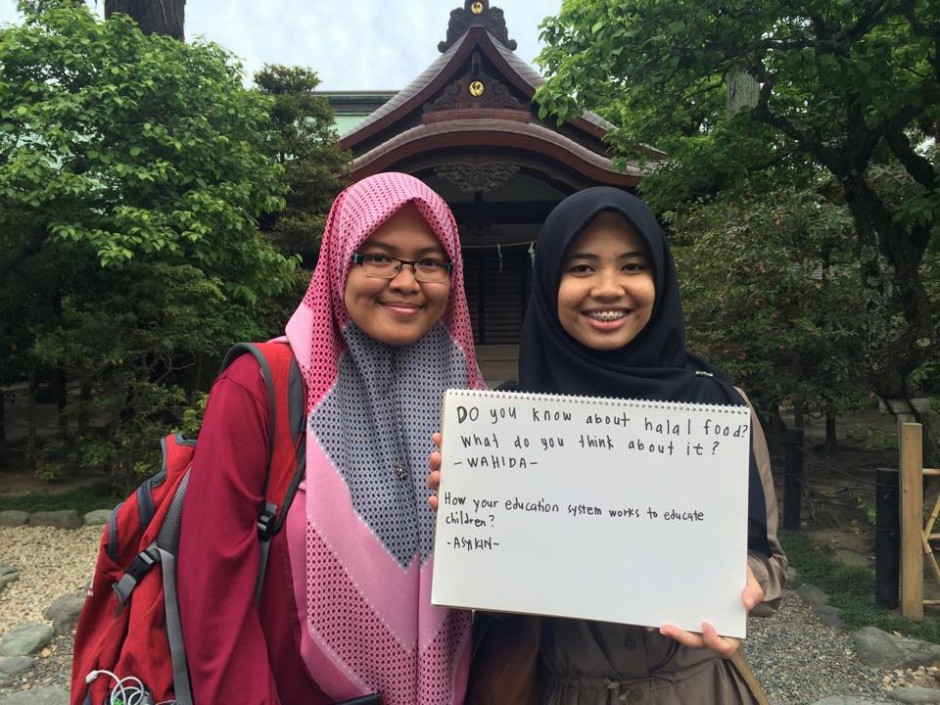 Do you know about halal food?
What do you think about it?
- WAHIDA -
How your education system works to educate
children?
- ASYKIN -